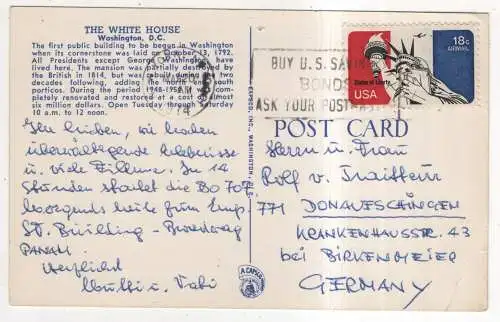 THE WHITE HOUSE
Washington, D.C.
The first public building to be begun in Washington
when its cornerstone was laid on October 13, 1792.
All Presidents except George Washington have
lived here. The mansion was partially destroyed by
the British in 1814, but was rebuilt during
decades adding the north and south
porticos. During the period 1948-1952
completely renovated and restored at a cost of almost
six million dollars. Open Tuesday through Saturday
10 a.m. to 12 noon.
haben
überwältigende Erlebnisse
u. viele Filme. In 14
Stunden startet die BO 707
heute zum Emp.
St. Building - Broadway
PANAM
Herzlichst
u. Vati
CAPSCO, INC., WASHINGTON, D.C.
A CAPSCO
AM
1974
BUY U.S. SAVINGS
BONDS
ASK YOUR POSTMASTER
18c
AIRMAIL
Statue of Liberty
USA
POST CARD
Herrn u. Frau
Rolf v.
771 DONAUESCHINGEN
KRANKENHAUSSTR. 43
bei BIRKENMEIER
GERMANY